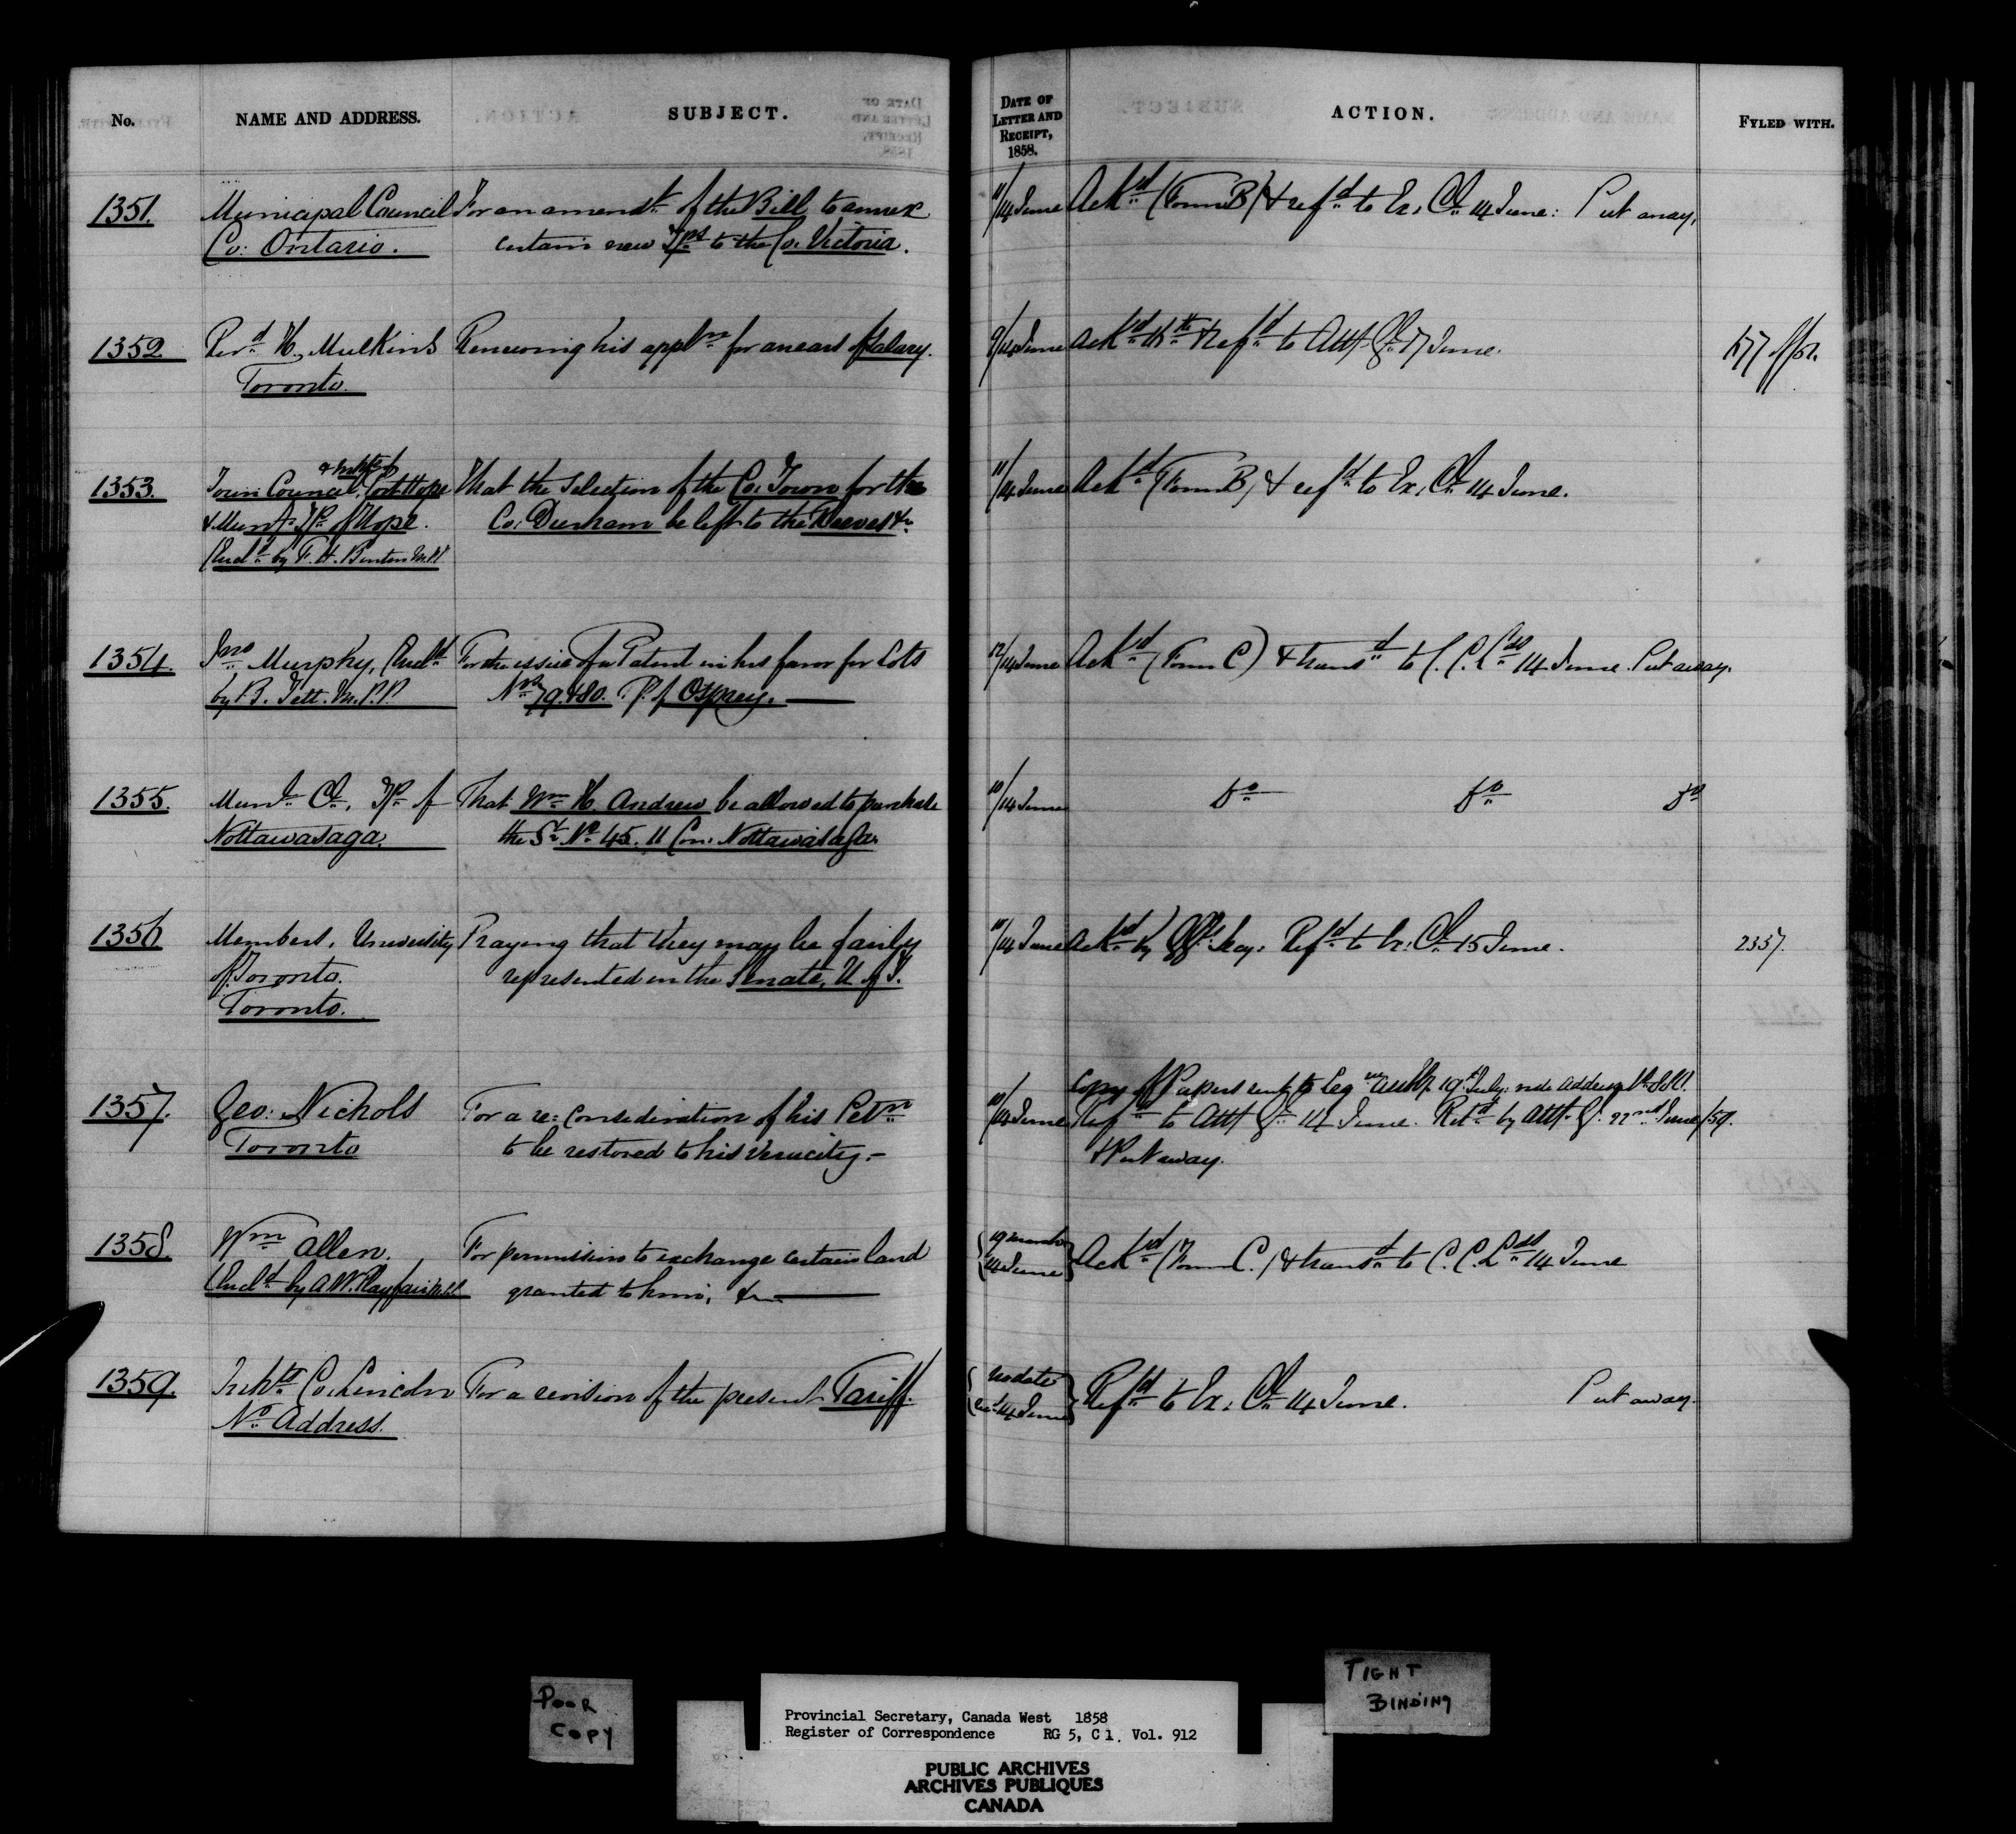 No.
NAME AND ADDRESS.
SUBJECT.
DATE OF
LETTER AND
RECEIPT,
1858.
ACTION.
FYLED WITH.
1351.
Municipal Council
Co: Ontario.
For an amendt. of the Bill to annex
certain new Tps to the Co. Victoria.
11/14 June
Ackd (Form B) & refd to Ex. Cl. 14 June: Put away.
1352
Revd H. Mulkins
Toronto.
Renewing his appln for arears of Salary.
9/14 June
Ackd & Refd to Atty Gl. 17 June.
1353.
Town Council, Port Hope
& Munt. Tp of Hope.
(Encd by F. H. Burton M.P.P.
That the Selection of the Co. Town for the
Co: Durham be left to the Reeves &c
11/14 June
Ackd (Form B) & refd to Ex. Cl. 14 June.
1354.
Jno Murphy, (Encd
by B. Tett. M.P.P.
For the issue of a Patent in his favor for Lots
Nos 79 & 80. Tp. of Osprey.
12/14 June
Ackd (Form C) & transd to C. C. Lds 14 June. Put away.
1355.
Munl. Cl. Tp of
Nottawasaga.
That Wm H. Andrew be allowed to purchase
the St. No 45. 11 Con: Nottawasaga
10/14 June
Do Do Do
1356
Members, University
of Toronto.
Toronto.
Praying that they may be fairly
represented in the Senate, U of T.
10/14 June
Ackd by Refd to Ex: Cl. 15 June.
2337.
1357.
Geo: Nichols
Toronto
For a re: consideration of his Petn
to be restored to his veracity.-
10/14 June
Copy of Papers sent to Leg. 19th July: vide Address
Refd to Atty Gl. 14 June. Retd by Atty. G. 22nd June/59.
& Put away.
1358.
Wm Allen.
(Encd by A W. Playfair M.P.P.
For permission to exchange certain land
granted to him, &c
19 March
14 June
Ackd (Form C.) & transd to C. C. Lds 14 June
1359.
Inhts Co. Lincoln
No Address.
For a revision of the present Tariff.
No date
recd 14 June
Refd to Ex: Cl. 14 June. Put away.
POOR
COPY
TIGHT
BINDING
Provincial Secretary, Canada West 1858
Register of Correspondence RG 5, C 1, Vol. 912
PUBLIC ARCHIVES
ARCHIVES PUBLIQUES
CANADA